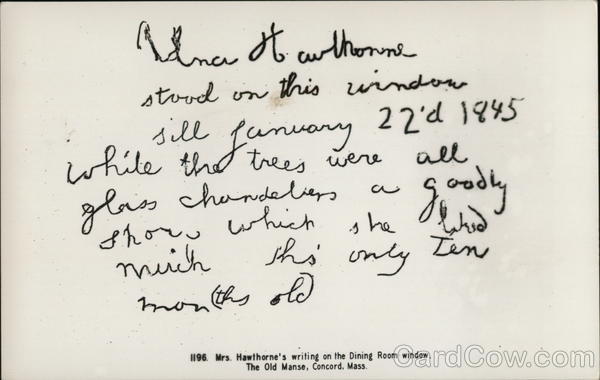 Una Hawthorne
stood on this window
sill January 22'd 1845
while the trees were all
glass chandeliers a goodly
show which she liked
much tho' only ten
months old
1196. Mrs. Hawthorne's writing on the Dining Room window,
The Old Manse, Concord, Mass.
CardCow.com